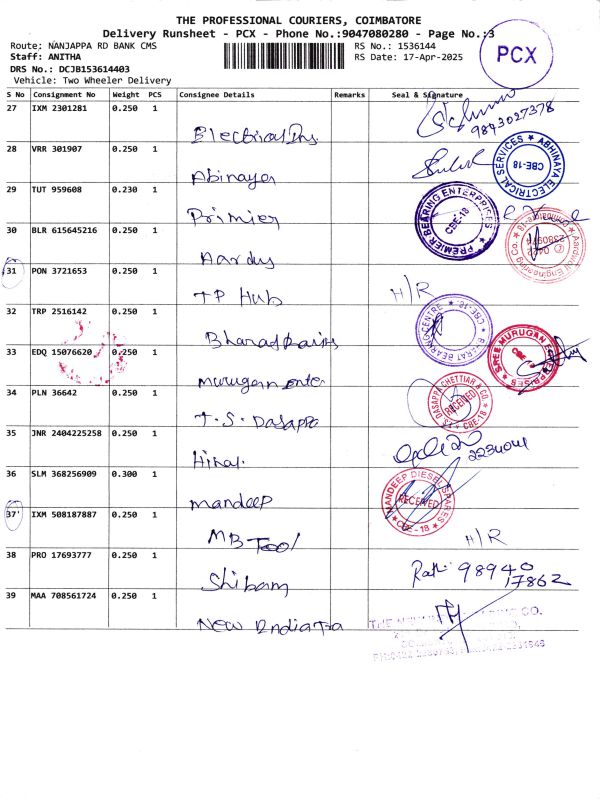 THE PROFESSIONAL COURIERS, COIMBATORE
Delivery Runsheet - PCX - Phone No.:9047080280 - Page No.:3
PCX
Route: NANJAPPA RD BANK CMS
RS No.: 1536144
Staff: ANITHA
RS Date: 17-Apr-2025
DRS No.: DCJB153614403
Vehicle: Two Wheeler Delivery
S No Consignment No Weight PCS Consignee Details Remarks Seal & Signature
27 IXM 2301281 0.250 1
9843027378
28 VRR 301907 0.250 1
Abinaya
ABHINAYA ELECTRICAL SERVICES ★ CBE-18
29 TUT 959608 0.230 1
Primier
PREMIER BEARING ENTERPRISES CBE-18
30 BLR 615645216 0.250 1
Engineering Co.
31 PON 3721653 0.250 1
TP Hub H/R
32 TRP 2516142 0.250 1
BEARING CENTRE CBE-18
33 EDQ 15076620 0.250 1
murugan
SREE MURUGAN CBE
34 PLN 36642 0.250 1
T.S. Dasappa
T.S. DASAPPA CHETTIAR & CO. RECEIVED CBE-18
35 JNR 2404225258 0.250 1
36 SLM 368256909 0.300 1
mandeep
MANDEEP DIESEL SPARES RECEIVED CBE-18
37 IXM 508187887 0.250 1
MB Tool H/R
38 PRO 17693777 0.250 1
Shibam
98940
17862
39 MAA 708561724 0.250 1
New India
CO.